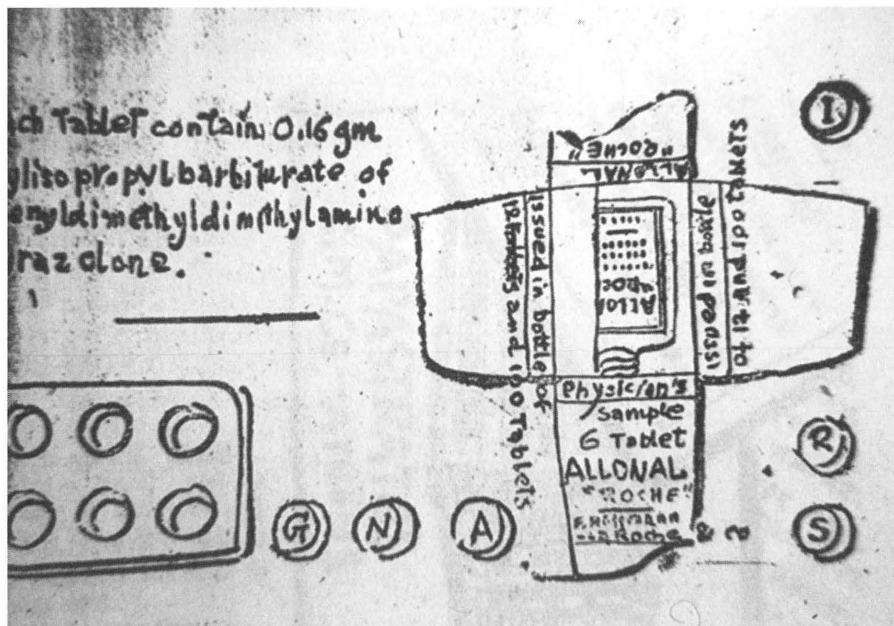 ch Tablet contain 0.16 gm
ylisopropylbarbiturate of
enyldimethyldimethylamino
raz clone.
"ROCHE"
ALLONAL
issued in bottle of
12 Tablets and 100 Tablets
issued in bottle
of 12 and 100 tablets
ALLO
Physician's
Sample
6 Tablet
ALLONAL
"ROCHE"
Roche
I
R
G N A S